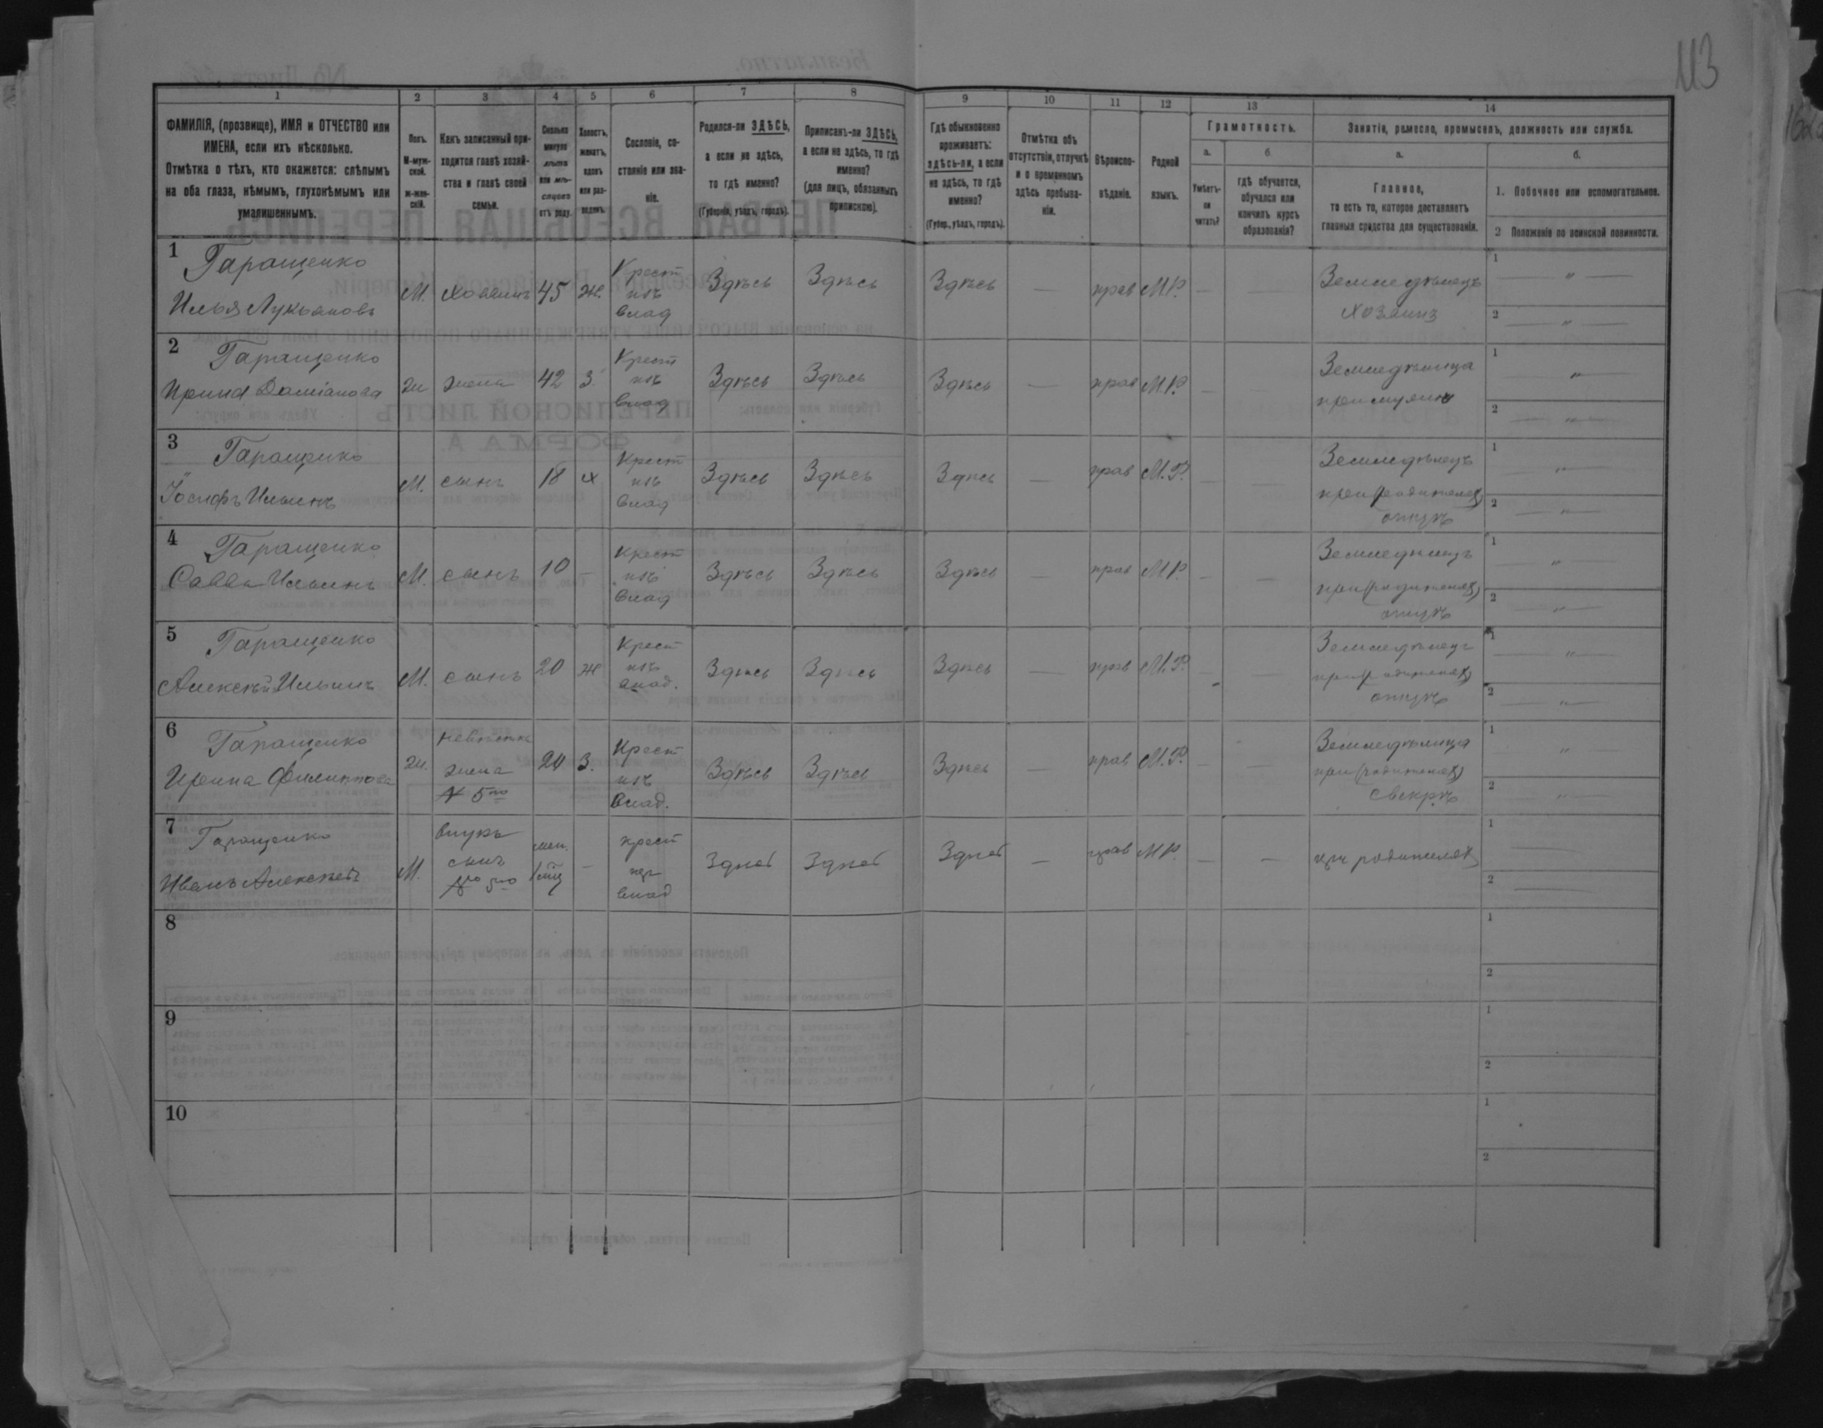 113
1 2 3 4 5 6 7 8 9 10 11 12 13 14
ФАМИЛІЯ, (прозвище), ИМЯ и ОТЧЕСТВО или
ИМЕНА, если ихъ нѣсколько.
Отмѣтка о тѣхъ, кто окажется: слѣпымъ
на оба глаза, нѣмымъ, глухонѣмымъ или
умалишеннымъ.
Полъ.
М-муж-
ской.
ж-жен-
скій.
Какъ записанный при-
ходится главѣ хозяй-
ства и главѣ своей
семьи.
Сколько
минуло
лѣтъ
или мѣ-
сяцевъ
отъ роду.
Холостъ,
женатъ,
вдовъ
или раз-
веденъ.
Сословіе, со-
стояніе или зва-
ніе.
Родился-ли ЗДѢСЬ,
а если не здѣсь,
то гдѣ именно?
(Губернія, уѣздъ, городъ).
Приписанъ-ли ЗДѢСЬ,
а если не здѣсь, то гдѣ
именно?
(для лицъ, обязанныхъ
припискою).
Гдѣ обыкновенно
проживаетъ:
здѣсь-ли, а если
не здѣсь, то гдѣ
именно?
(Губер., уѣздъ, городъ).
Отмѣтка объ
отсутствіи, отлучкѣ
и о временномъ
здѣсь пребыва-
ніи.
Вѣроиспо-
вѣданіе.
Родной
языкъ.
Грамотность.
а.
Умѣетъ-
ли
читать?
б
гдѣ обучается,
обучался или
кончилъ курсъ
образованія?
Занятіе, ремесло, промыселъ, должность или служба.
а.
Главное,
то есть то, которое доставляетъ
главныя средства для существованія.
б.
1. Побочное или вспомогательное.
2 Положеніе по воинской повинности.
1 Гаращенко
Илья Лукьяновъ М. хозяинъ 45 ж. Крест изъ влад Здѣсь Здѣсь Здѣсь — прав М.Р. — — Земледѣлецъ хозяинъ 1 — " — 2 — " —
2 Гаращенко
Ирина Даміанова ж жена 42 З. Крест изъ влад Здѣсь Здѣсь Здѣсь — прав М.Р. — Земледѣлица при мужѣ 1 " 2 — " —
3 Гаращенко
Іосифъ Ильинъ М. сынъ 18 х Крест изъ влад Здѣсь Здѣсь Здѣсь — прав М.Р. — — Земледѣлецъ при (родителях) отцѣ 1 — " — 2 — " —
4 Гаращенко
Савва Ильинъ М. сынъ 10 — Крест изъ влад Здѣсь Здѣсь Здѣсь — прав М.Р. — — Земледѣлецъ при (родителях) отцѣ 1 — " — 2 — " —
5 Гаращенко
Алексѣй Ильинъ М. сынъ 20 ж Крест изъ влад. Здѣсь Здѣсь Здѣсь — прав М.Р. — — Земледѣлецъ при (родителях) отцѣ 1 — " — 2 — " —
6 Гаращенко
Ирина Филиппова ж. невѣстка жена № 5го 20 З. Крест изъ влад. Здѣсь Здѣсь Здѣсь — прав М.Р. — — Земледѣлица при (родителях) свекрѣ 1 " 2 — " —
7 Гаращенко
Иванъ Алексѣевъ М. внукъ сынъ № 5го — крест изъ влад Здѣсь Здѣсь Здѣсь — прав М.Р. — — при родителях 1 — 2 —
8 1
2
9 1
2
10 1
2